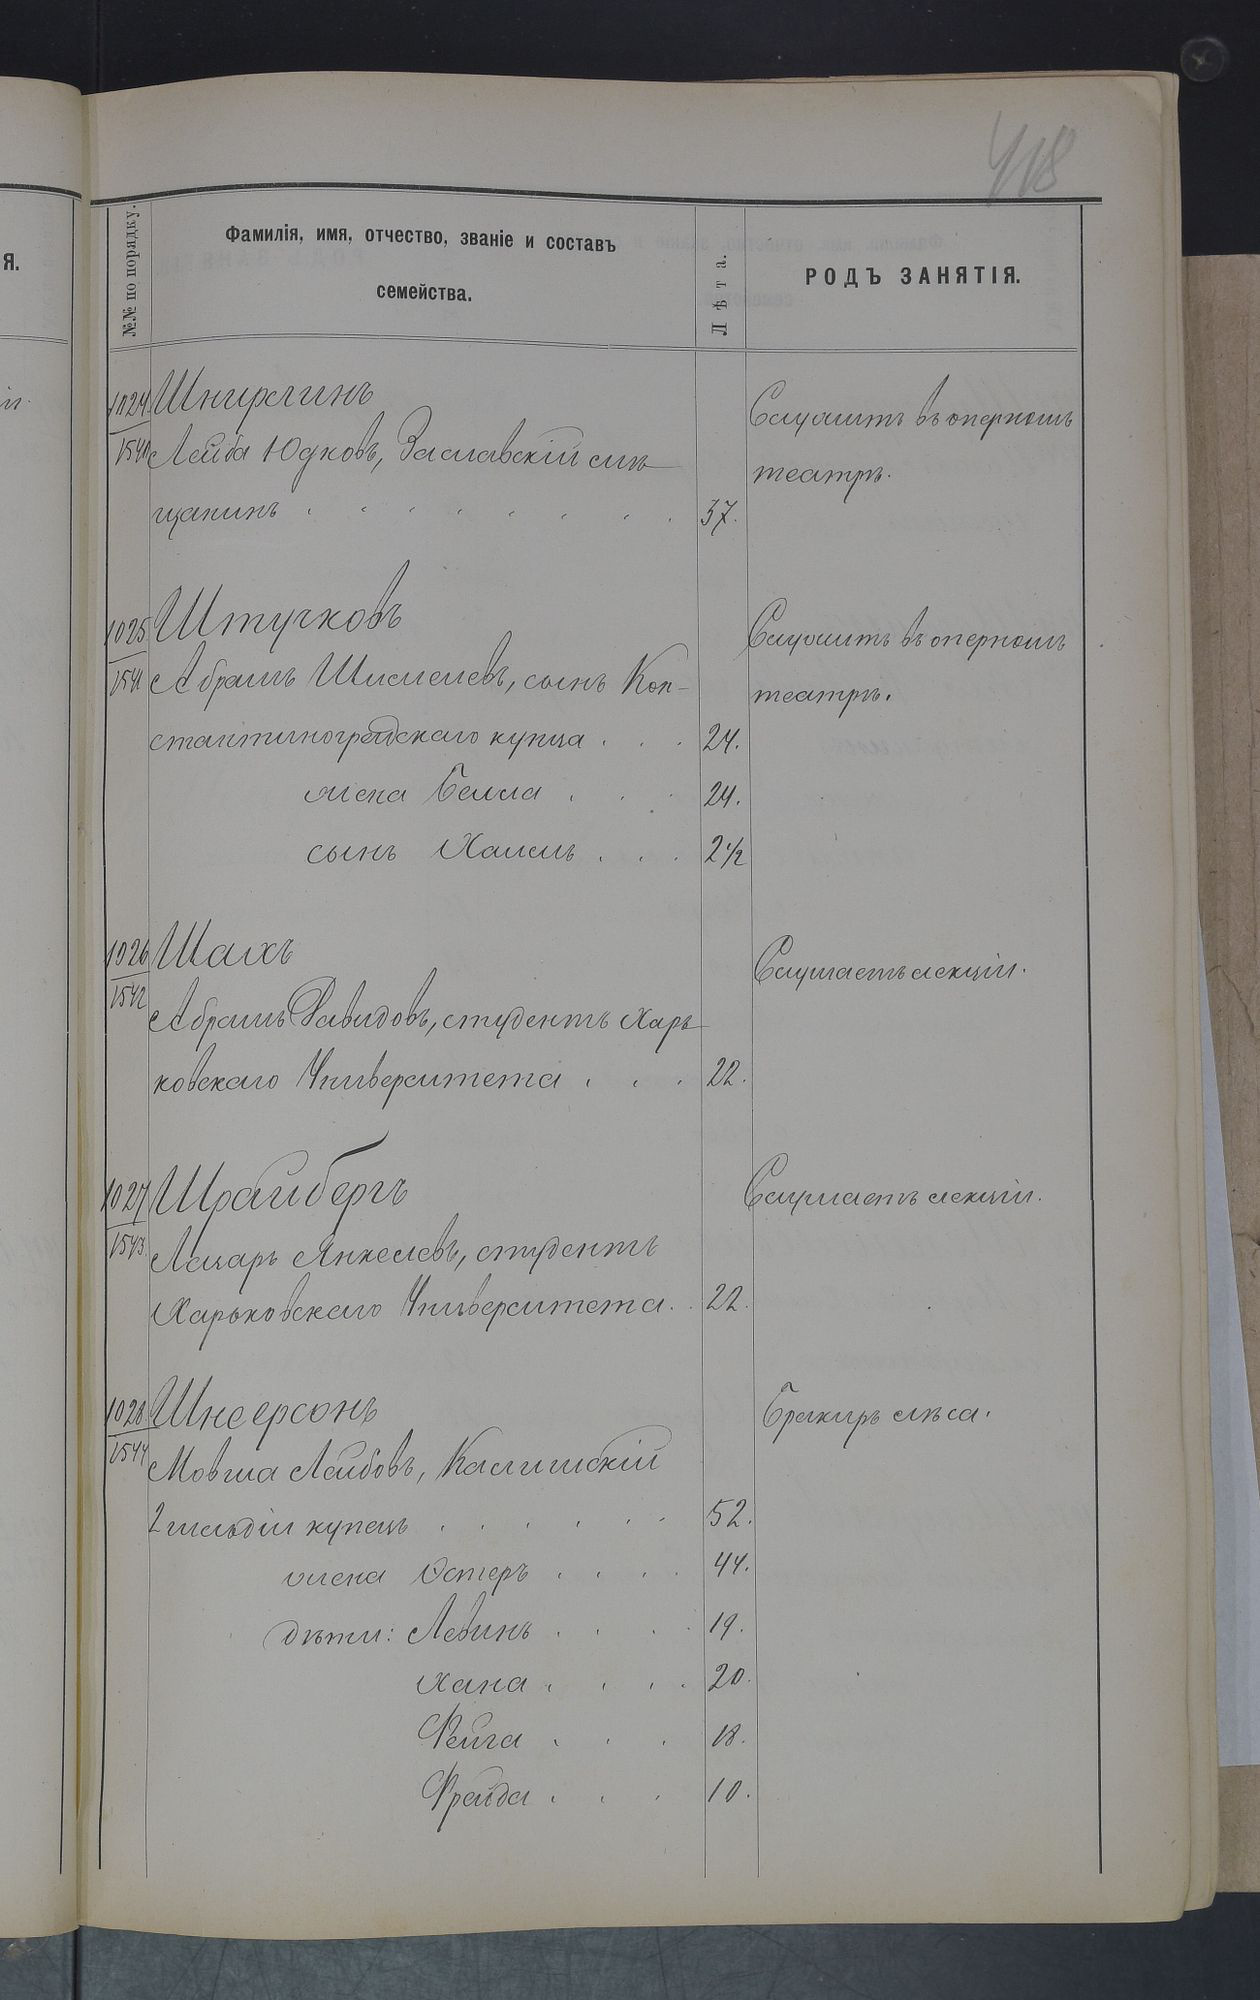 418
Я.
№№ по порядку.
Фамилія, имя, отчество, званіе и составъ
семейства.
Лѣта.
РОДЪ ЗАНЯТІЯ.
1024
1540
Лейба Юдковъ, Заславскій мѣ-
щанинъ 37.
Служитъ въ оперномъ
театрѣ.
1025
1541
Штучковъ
Абрамъ Шмелевъ, сынъ Кон-
стантиноградскаго купца 24.
жена Бейла 24.
сынъ Хаимъ 2 1/2
Служитъ въ оперномъ
театрѣ.
1026
1542
Шахъ
Абрамъ Давидовъ, студентъ Харь-
ковскаго Университета 22.
Слушаетъ лекціи.
1027
1543
Шрайбергъ
Лазарь Янкелевъ, студентъ
Харьковскаго Университета 22.
Слушаетъ лекціи.
1028
1544
Шнеерсонъ
Мовша Лейбовъ,
2 гильдіи купецъ 52.
жена Эстеръ 44.
дѣти: Левинъ 19.
Хана 20.
Фейга 18.
Фрейда 10.
Бракиръ лѣса.